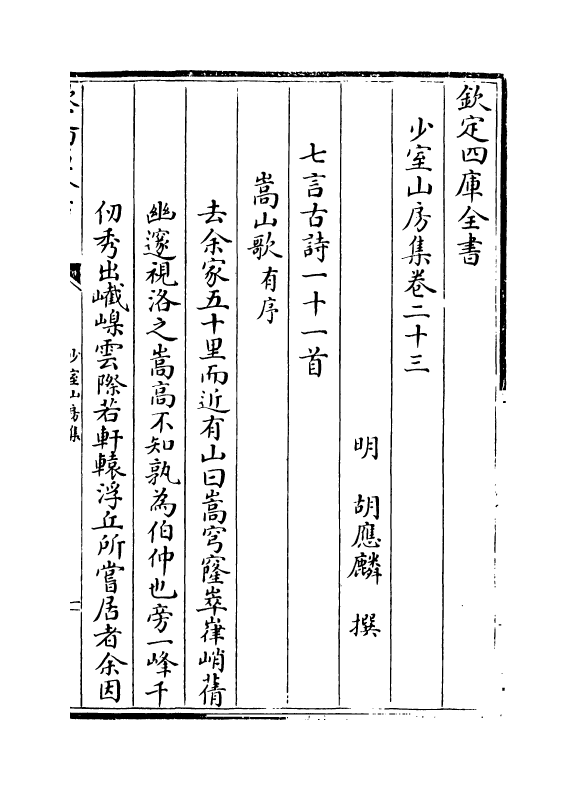 欽定四庫全書
少室山房集卷二十三
明 胡應麟 撰
七言古詩一十一首
嵩山歌有序
去余家五十里而近有山曰嵩穹窿崒嵂峭蒨
幽邃視洛之嵩高不知孰為伯仲也旁一峰千
仞秀出巀嵲雲際若軒轅浮丘所嘗居者余因
少室山房集